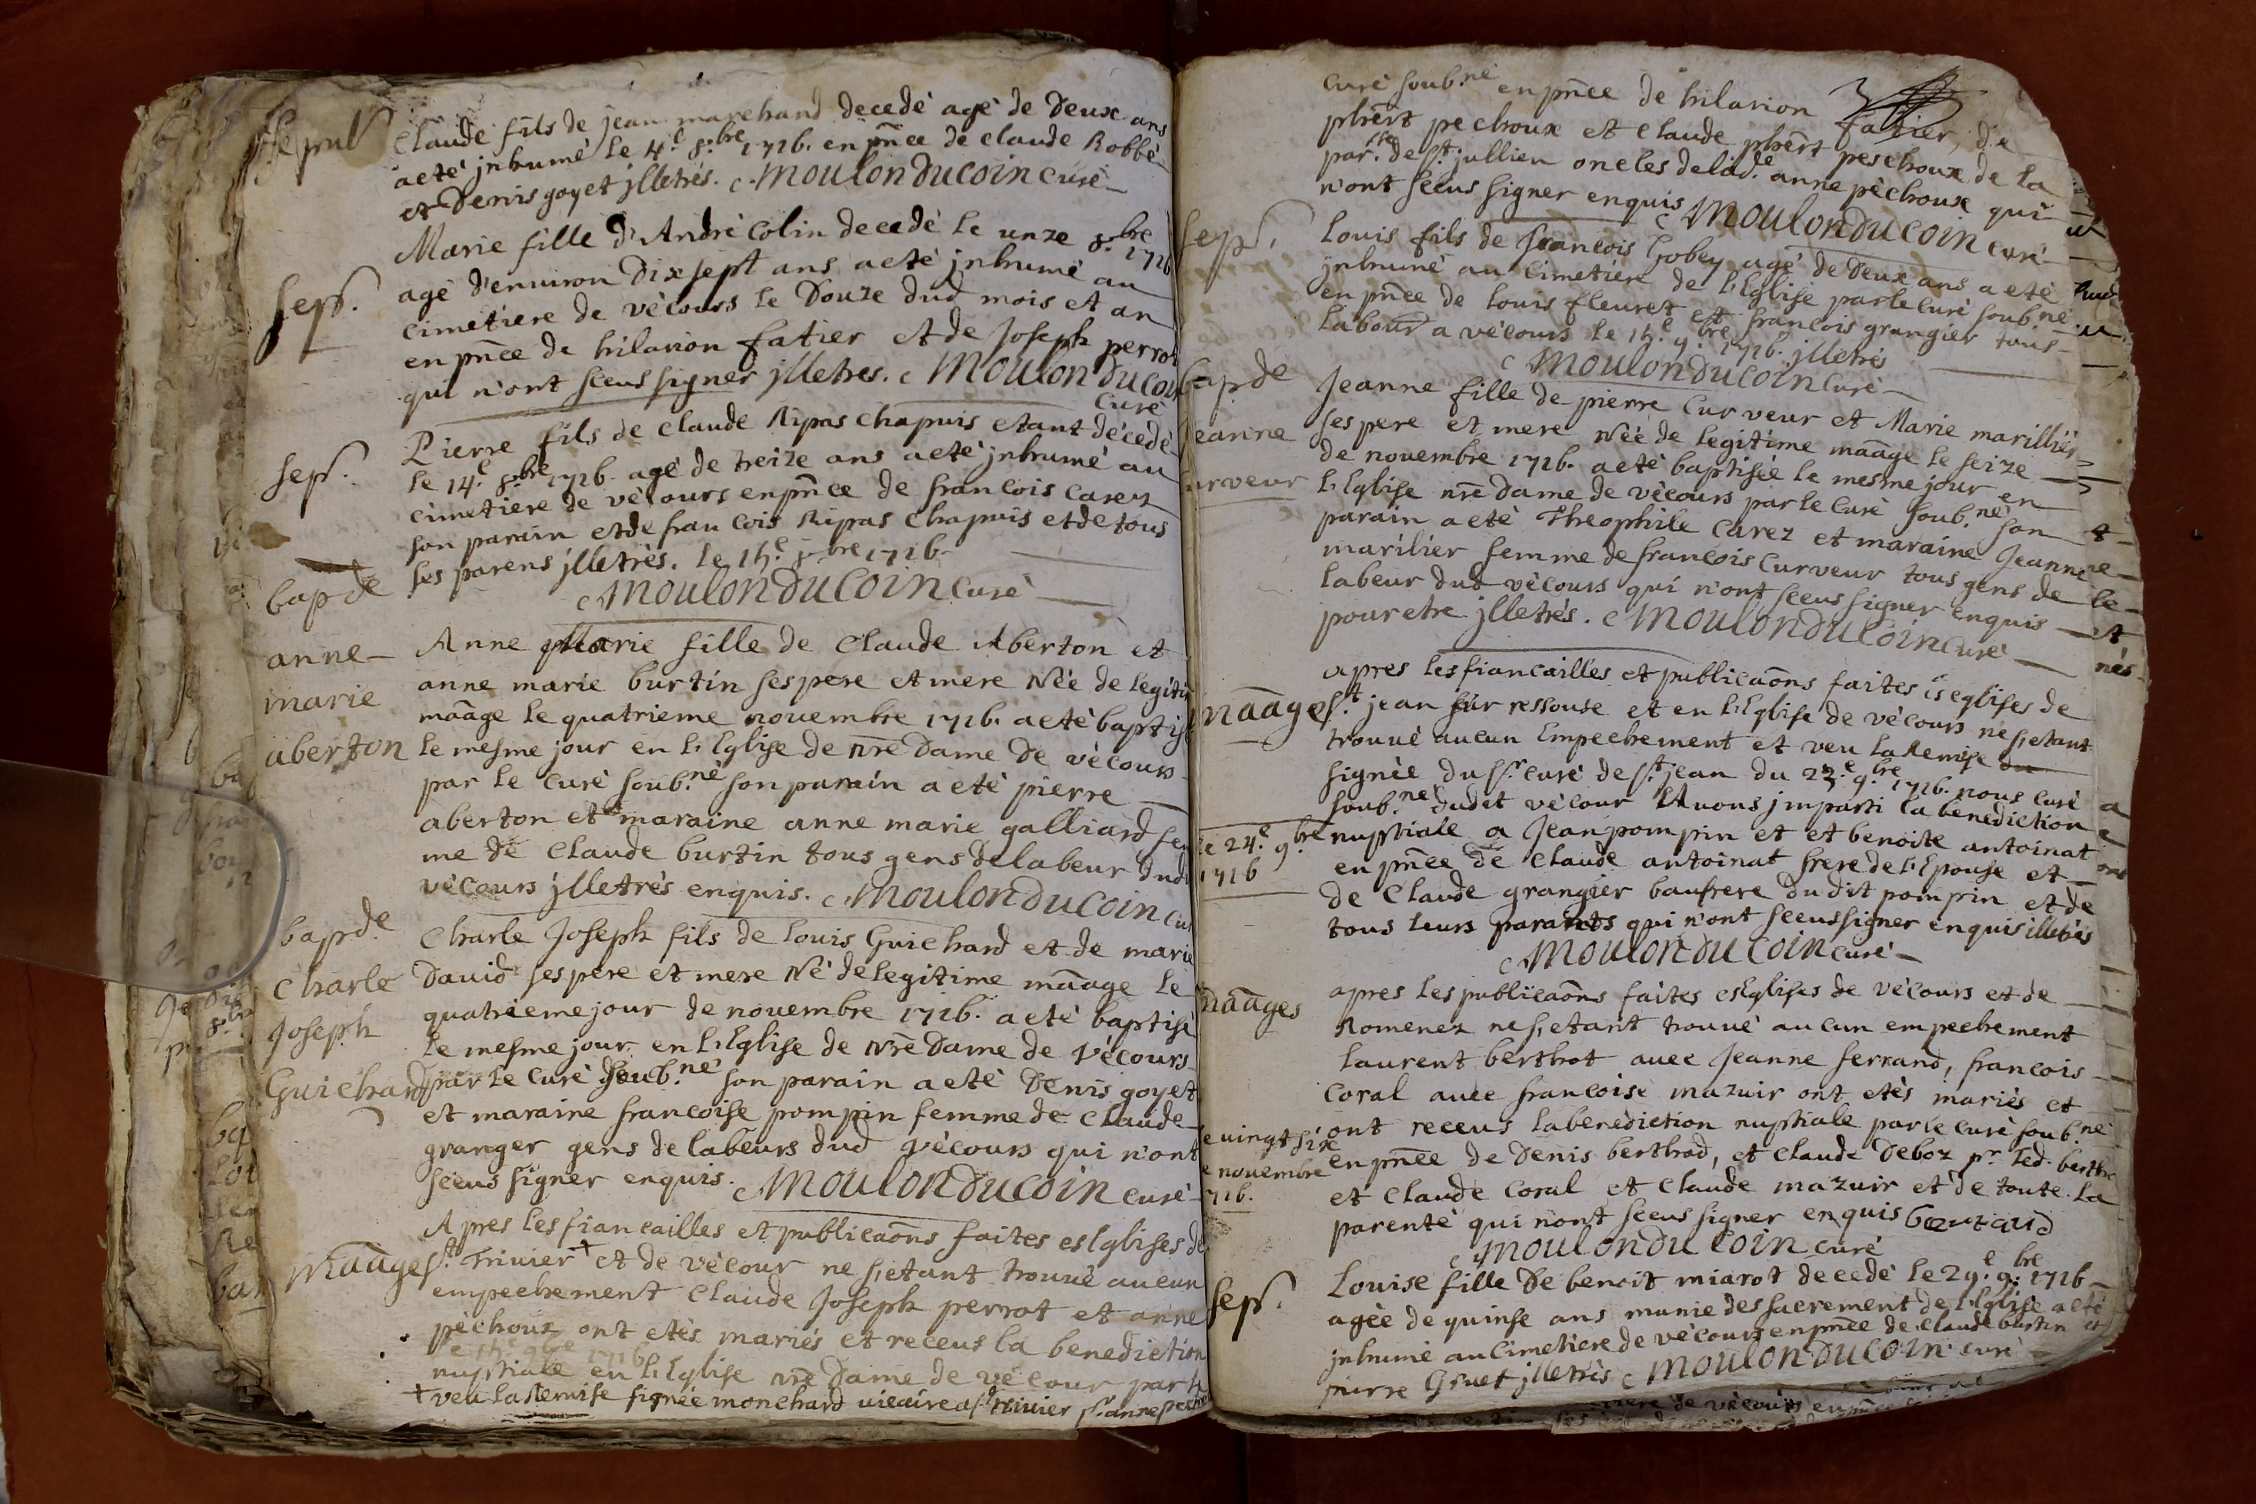 sepul
Claude fils de jean marchand decedé agé de Deux ans
a eté jnhumé le 4.e 8.bre 1716. en pñce de claude Robbé
et Denis goyet jlletrés. Moulon Ducoin curé
sep.
Marie fille d'André Colin decedé le unze 8.bre 1716
agé d'enuiron Dix sept ans a eté jnhumé au
cimetiere de vécours le Douze dud mois et an
en pñce de hilarion fatier et de Joseph perrot
qui n'ont sceus signer jlletres. Moulon Ducoin
curé
sep.
Pierre fils de claude Ripas chapuis etant décedé
le 14.e 8.bre 1716. agé de treize ans a eté jnhumé au
cimetiere de vécours en pñce de francois carez
son parain et de francois Ripas chapuis et de tous
ses parens jlletrés. le 15.e 8.bre 1716.
Moulon Ducoin Curé
bap de
anne
marie
aberton
Anne Marie fille de Claude Aberton et
anne marie burtin ses pere et mere Née de legiti
maãge le quatrieme nouembre 1716. a eté baptis
le mesme jour en l'Eglise de nře Dame De vécours
par le curé soub.né son parain a eté pierre
aberton et maraine anne marie galliard fem
me de Claude burtin tous gens de labeur dud
vécours jlletrés enquis. Moulon Ducoin cu
bap de.
Charle
Joseph
Guichard
Charle Joseph fils de louis Guichard et de marie
Dauid ses pere et mere Né de legitime maãge le
quatrieme jour de nouembre 1716. a eté baptisé
le mesme jour en l'Eglise de nře Dame de Vécours
par le curé soub.né son parain a eté Denis goyet
et maraine francoise pompin femme de Claude
granger gens de labeurs dud Vécours qui n'ont
sceus signer enquis. Moulon Ducoin curé
maãge
Apres les fiancailles et publicaõns faites es Eglises de
s.t Triuier + et de vécour ne s'etant trouué aucun
empechement Claude Joseph perrot et anne
péchoux ont etés mariés et receus la benediction
le 15.e 9.bre 1716
nuptiale en l'Eglise nře Dame de vécour par le
+ veu la Remise signée monchard uicaire a s.t triuier p.r anne pechoux
curé soub.né en pñce de hilarion fatier, de
phért pechoux et claude phért peschoux de la
par.sse de s.t jullien oncles de lad.e anne péchoux qui
n'ont sceus signer enquis Moulon Ducoin curé
sep.
Louis fils de francois Gobey agé de Deux ans a eté
jnhumé au cimetiere de l'Eglise par le curé soub.né
en pñce de louis fleuret et francois grangier tous
labour a vécours le 15.e 9.bre 1716. jlletrés
Moulon Ducoin curé
bap de
Jeanne
curveur
Jeanne fille de pierre Curveur et Marie marilliér
ses pere et mere Née de legitime maãge le seize
de nouembre 1716. a eté baptisée le mesme jour en
l'Eglise nře Dame de vécours par le curé soub.né son
parain a eté Theophile Carez et maraine Jeanne
marilier femme de francois Curveur tous gens de
labeur dud vécours qui n'ont sceus signer enquis
pour etre jlletrés. Moulon Ducoin curé
maãge
le 24.e 9.bre
1716
apres les fiancailles et publicaõns faites és eglises de
s.t jean sur ressouse et en l'Eglise de vécours ne s'etant
trouué aucun Empechement et veu la Remise
signée du s.r curé de s.t jean du 23.e 9.bre 1716. nous curé
soub.né dudit vécour Auons jmparti la benediction
nuptiale a Jean pompin et et benoite antoinat
en pñce de Claude antoinat frere de l'Epouse et
de Claude grangier baufrere du dit pompin et de
tous leurs parants qui n'ont sceus signer enquis illetrés
Moulon Du Coin curé
maãges
le uingt six
e nouembre
1716.
apres les publicaõns faites es Eglises de vécours et de
Romenez ne s'etant trouué aucun empechement
laurent berthot auec Jeanne ferrand, francois
Coral auec francoise mazuir ont etés mariés et
ont receus la benediction nuptiale par le curé soub.né
en pñce de Denis berthod, et claude Deboz p.r led. berthod
et Claude Coral et Claude mazuir et de toute la
parenté qui n'ont sceus signer enquis
Moulon Du Coin curé
sep.
Louise fille De benoit miarot decedé le 29.e 9.bre 1716
agée de quinse ans munie des sacrement de l'Eglise a eté
jnhumé au cimetiere de vécours en pñce de claude burtin et
pierre Gruet jlletrés Moulon Ducoin curé